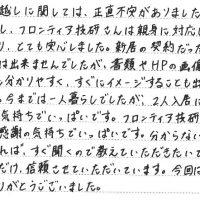 越しに関しては、正直不安がありました
し、フロンティア技研さんは親身に対応し
り、とても安心しました。新居の契約だった
は出来ませんでしたが、書類やHPの画像
分かりやすく、すぐにイメージすることも出
今までは一人暮らしでしたが、2人入居に
気持ちでいっぱいです。フロンティア技研
感謝の気持ちでいっぱいです。分からない
れば、すぐ聞くので教えていただきたいで
だけ、信頼させていただいています。今回は
りがとうございました。